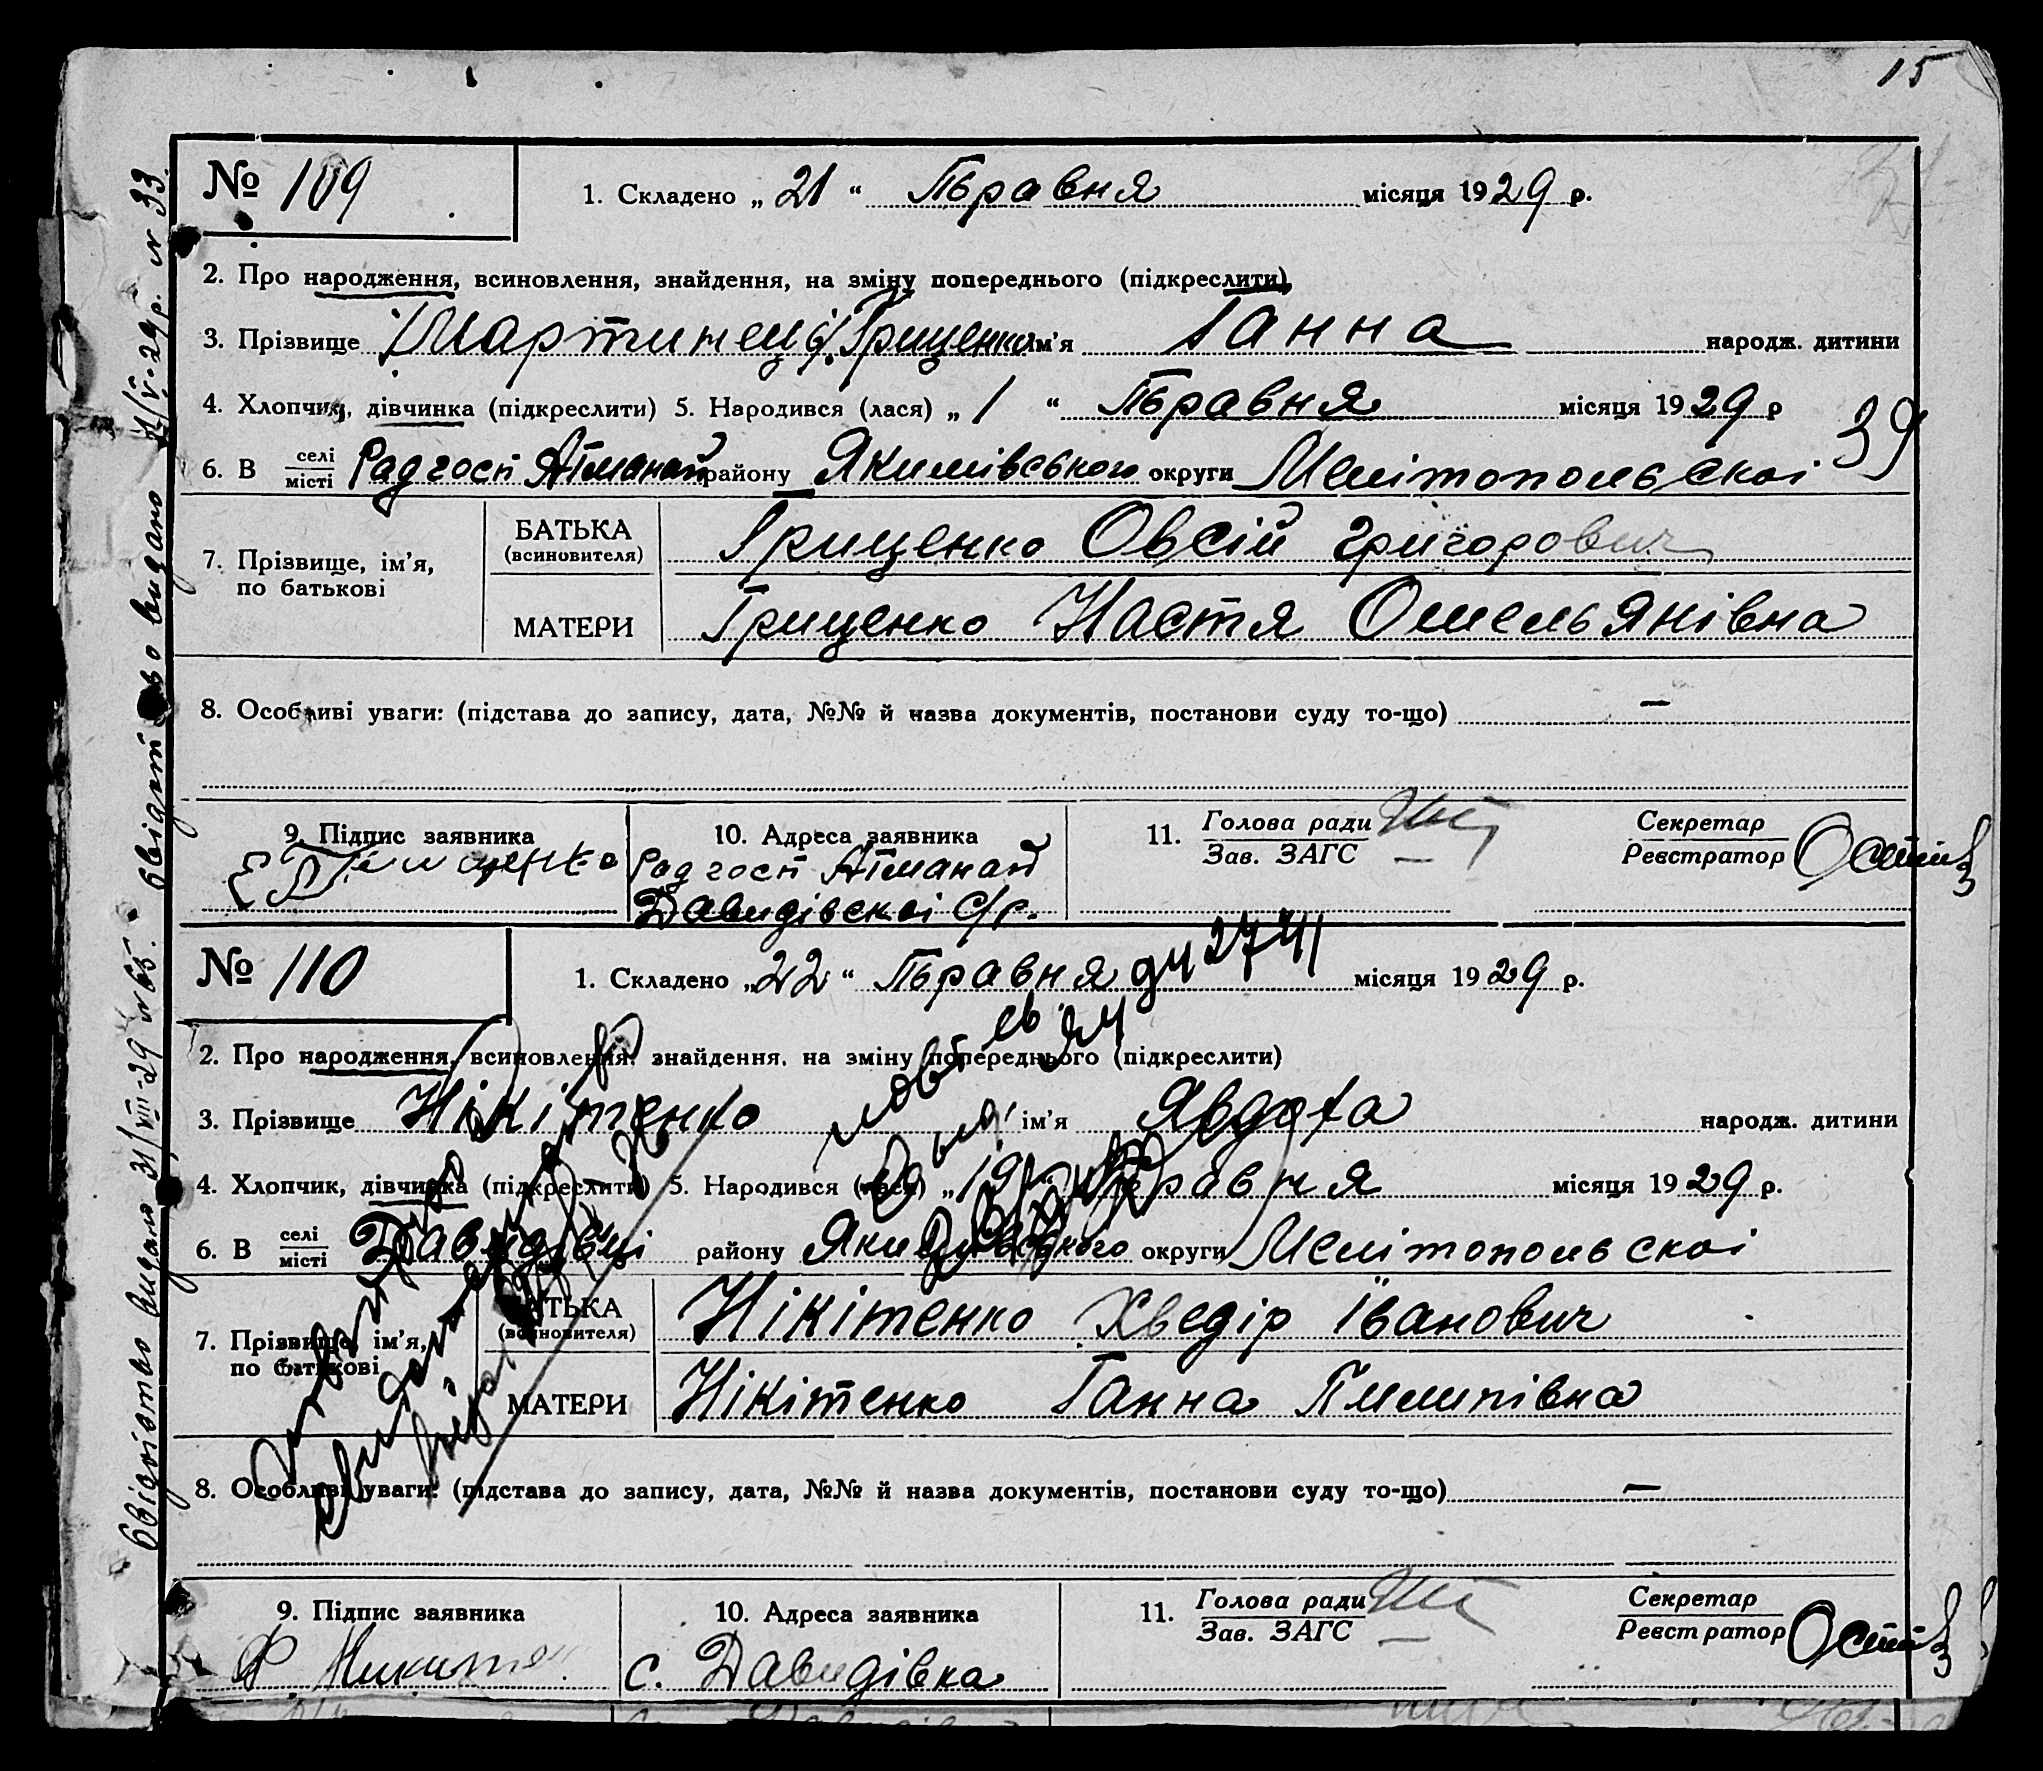 15
№ 109
1. Складено „ 21 “ Травня місяця 1929 р.
2. Про народження, всиновлення, знайдення, на зміну попереднього (підкреслити)
3. Прізвище Грищенко ім'я Ганна народж. дитини
4. Хлопчик, дівчинка (підкреслити) 5. Народився (лася) „ 1 “ Травня місяця 1929 р
39
6. В селі місті Радгосп Атманай району Якимівського округи Мелітопольскої
7. Прізвище, ім'я, по батькові
БАТЬКА (всиновителя) Грищенко Овсій Григорович
МАТЕРИ Грищенко Настя Омельянівна
8. Особливі уваги: (підстава до запису, дата, №№ й назва документів, постанови суду то-що) —
9. Підпис заявника
10. Адреса заявника
Радгосп Атманай
Давидівскої С/р.
11. Голова ради Зав. ЗАГС
Секретар Реєстратор
№ 110
1. Складено „ 22 “ Травня місяця 1929 р.
2. Про народження, всиновлення, знайдення, на зміну попереднього (підкреслити)
3. Прізвище Нікітенко ім'я Явдоха народж. дитини
4. Хлопчик, дівчинка (підкреслити) 5. Народився (лася) „ 19 Травня місяця 1929 р.
6. В селі місті Давидівці району Якимівського округи Мелітопольскої
7. Прізвище, ім'я, по батькові
БАТЬКА (всиновителя) Нікітенко Хведір Іванович
МАТЕРИ Нікітенко Ганна Пилипівна
8. Особливі уваги: (підстава до запису, дата, №№ й назва документів, постанови суду то-що) —
9. Підпис заявника
10. Адреса заявника
с. Давидівка
11. Голова ради Зав. ЗАГС
Секретар Реєстратор
Свідоцтво видано 31/VIII-29 № 65.
Свідоцтво видано 21/V-29 р. № 33.